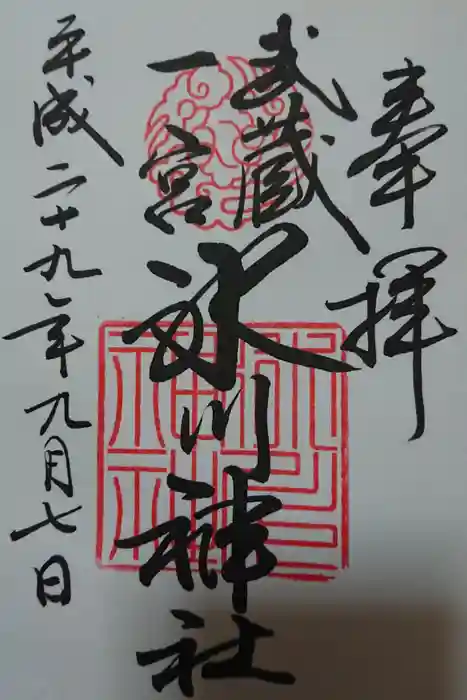 奉拝
武蔵
一宮
氷川神社
平成二十九年九月七日
氷川
神社